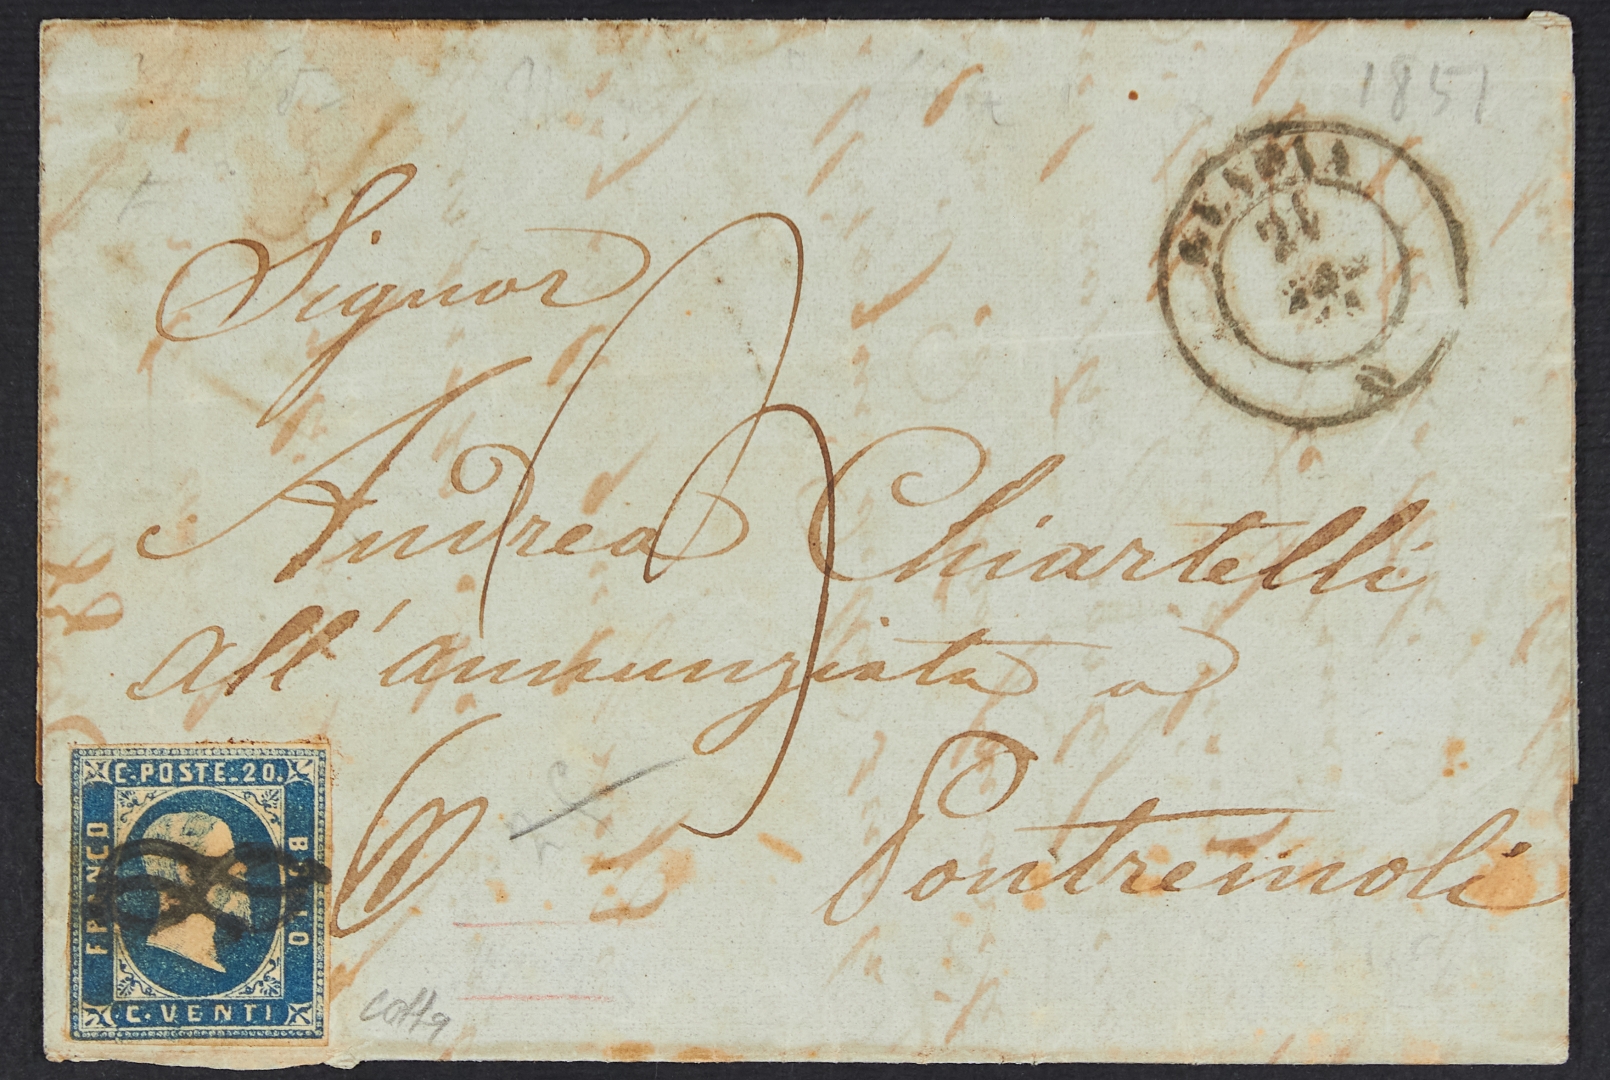 1851
GENOVA
21
Signor
Andrea Chiartelli
all'annunziata a
Pontremoli
C. POSTE. 20.
FRANCO
BOLLO
C. VENTI